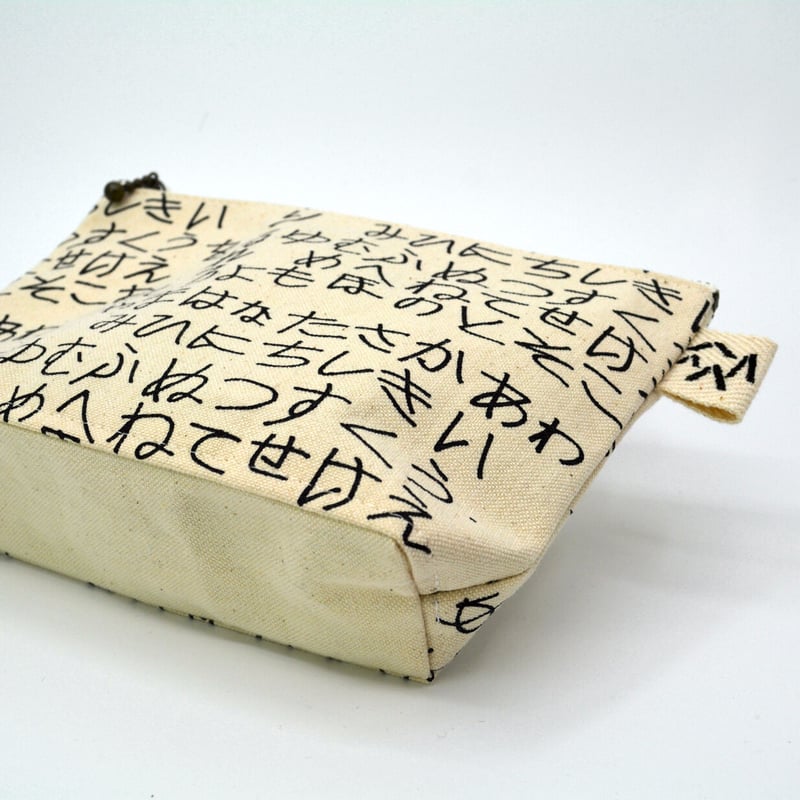 しきい
すくう
せけえ
そこ
り みひにちしき
ゆむふぬつすく
めへねてせけ
よもほのとそこ
はなたさかあわ
みひにちしきい
ゆむふぬつすくう
めへねてせけえ
め